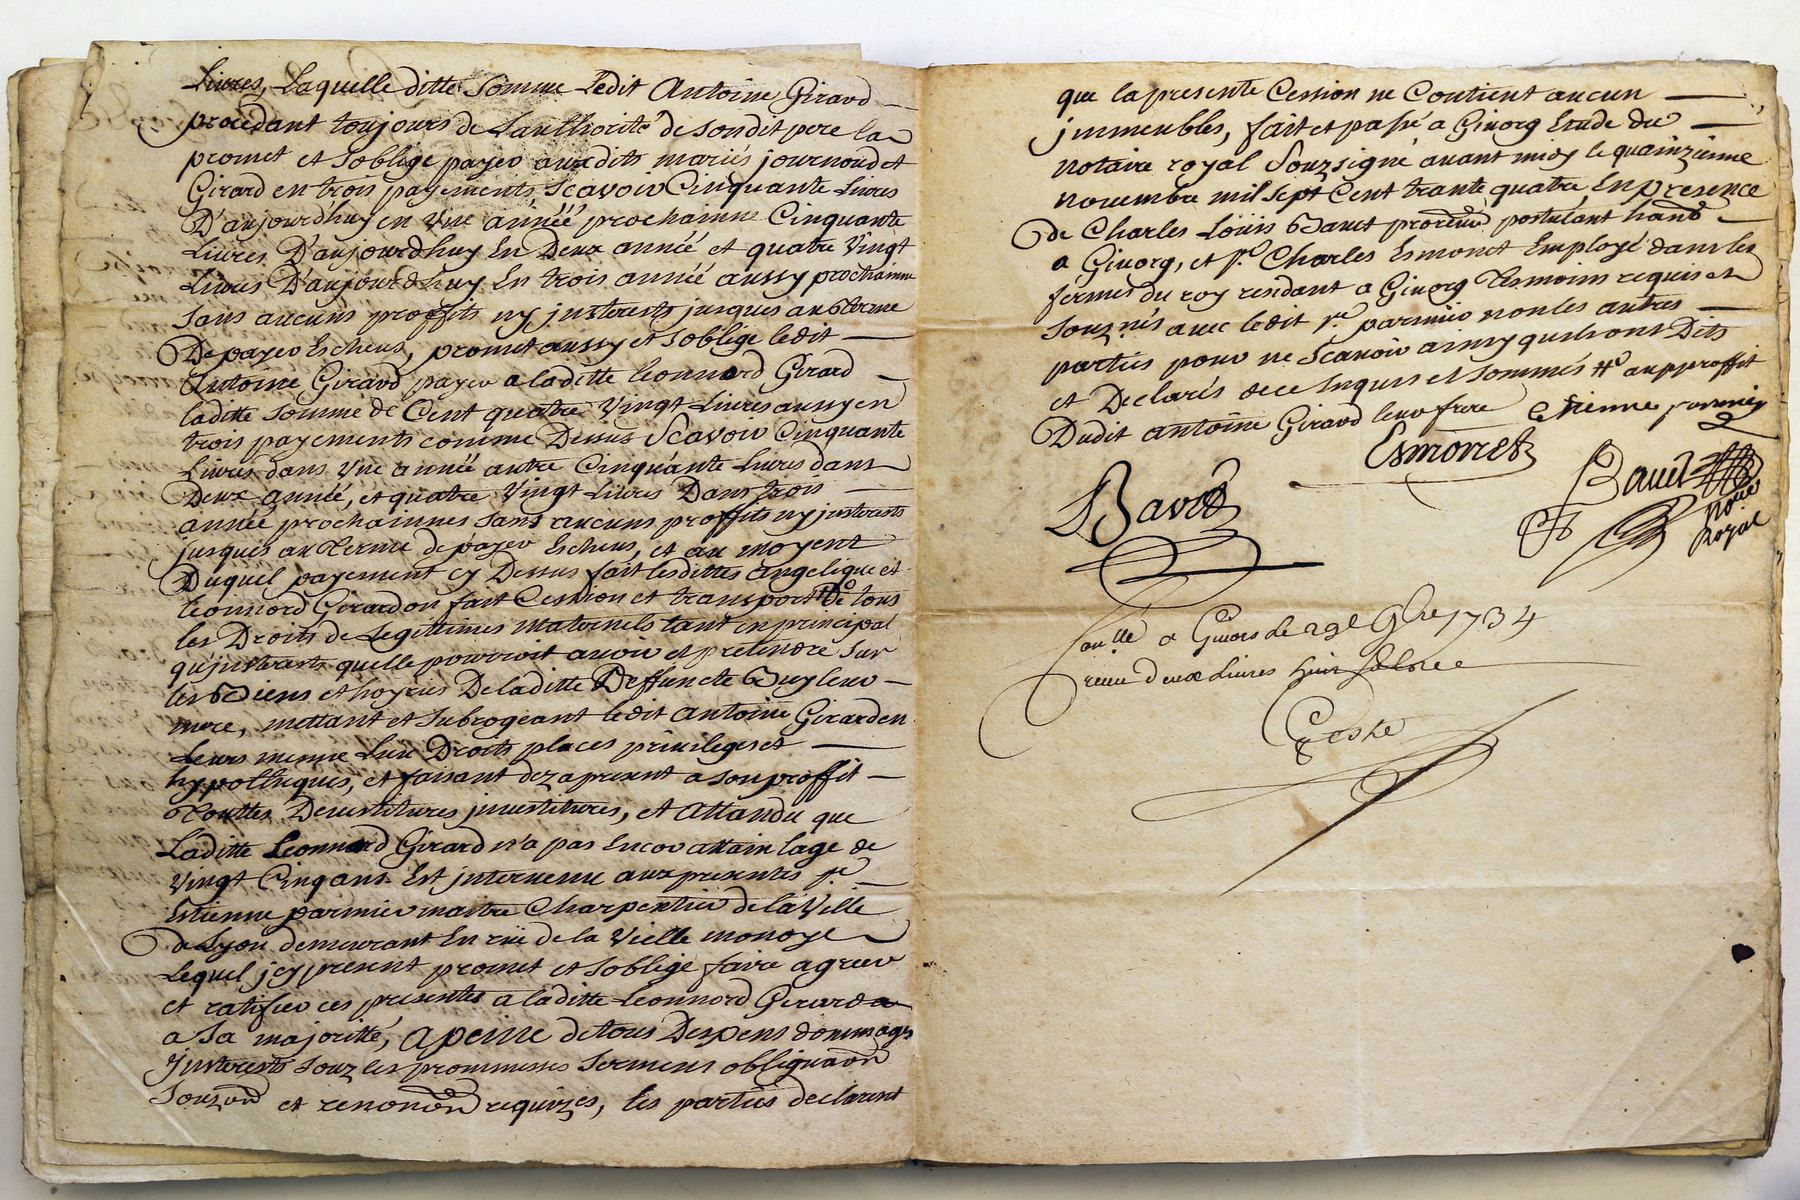 Livres, Laquelle ditte Somme Ledit Antoine Girard
procedant toujours de Lauthorité de sondit pere la
promet et soblige payer auxdits mariés journoud et
Girard en trois payements Scavoir Cinquante Livres
D'aujourd'huy en Une année prochainne Cinquante
Livres D'aujourdhuy En Deux année et quatre Vingt
Livres D'aujourdhuy En trois année aussy prochainne
sans aucuns proffits ny jnterests jusques au terme
De payer Escheus, promet aussy et soblige ledit
Antoine Girard payer a laditte Leonnard Girard
laditte somme de Cent quatre Vingt Livres aussy en
trois payements comme Dessus Scavoir Cinquante
Livres dans Une année autre Cinquante Livres dans
Deux année, et quatre Vingt Livres Dans trois
année prochainnes sans aucuns proffits ny jnterests
jusques au Terme de payer Escheus, et au moyent
Duquel payement cy Dessus fait lesdittes angelique et
Leonnord Girard on fait Cession et transport De tous
les Droits de Legittimes Maternels tant en principal
qu'jnterests quelle pourroit avoir et pretendre sur
les Biens et hoyries De laditte Deffuncte Buy leur
mere, mettant et subrogeant ledit Antoine Girard en
Leurs meme Lieu Droits places privileges et
hypotheques, et faisant dez apresent a son proffit
Touttes Devestitures jnvestitures, et Attandu que
Laditte Leonnard Girard n'a pas Encor attain lage de
Vingt Cinq ans Est jntervenu aux presentes sr
Estienne parmier maitre Charpentier de la Ville
de Lyon demeurant En rüe de la Vielle monoye
Lequel jcy present promet et soblige faire agreer
et ratifier ces presentes a laditte Leonnord Girard
a sa majoritté, a peine de tous Despens dommages
Jnterests souz les prommesses sermens obligaon
souzon et renonon requizes, les parties declarent
que la presente Cession ne Contient aucun
jmmeubles, fait et passé a Givorg Etude du
notaire royal Souzsigné avant midy le quainzieme
novembre mil sept Cent trante quatre, En presence
de Charles Loüis Bavet postulant
a Givorg, et sr. Charles Esmonet Employé dans les
fermes du roy residant a Givorg Tesmoins requis et
souznés avec ledit sr. parmier non les autres
parties pour ne Scavoir ainsy quils ont Dits
et Declarés de ce Enquis et sommés # au proffit
Dudit antoine Girard leur frere Etienne parmier
Esmonet
Bavet
Bavet
nore
Royal
a Givors le 29e 9bre 1734
receu deux Livres huit